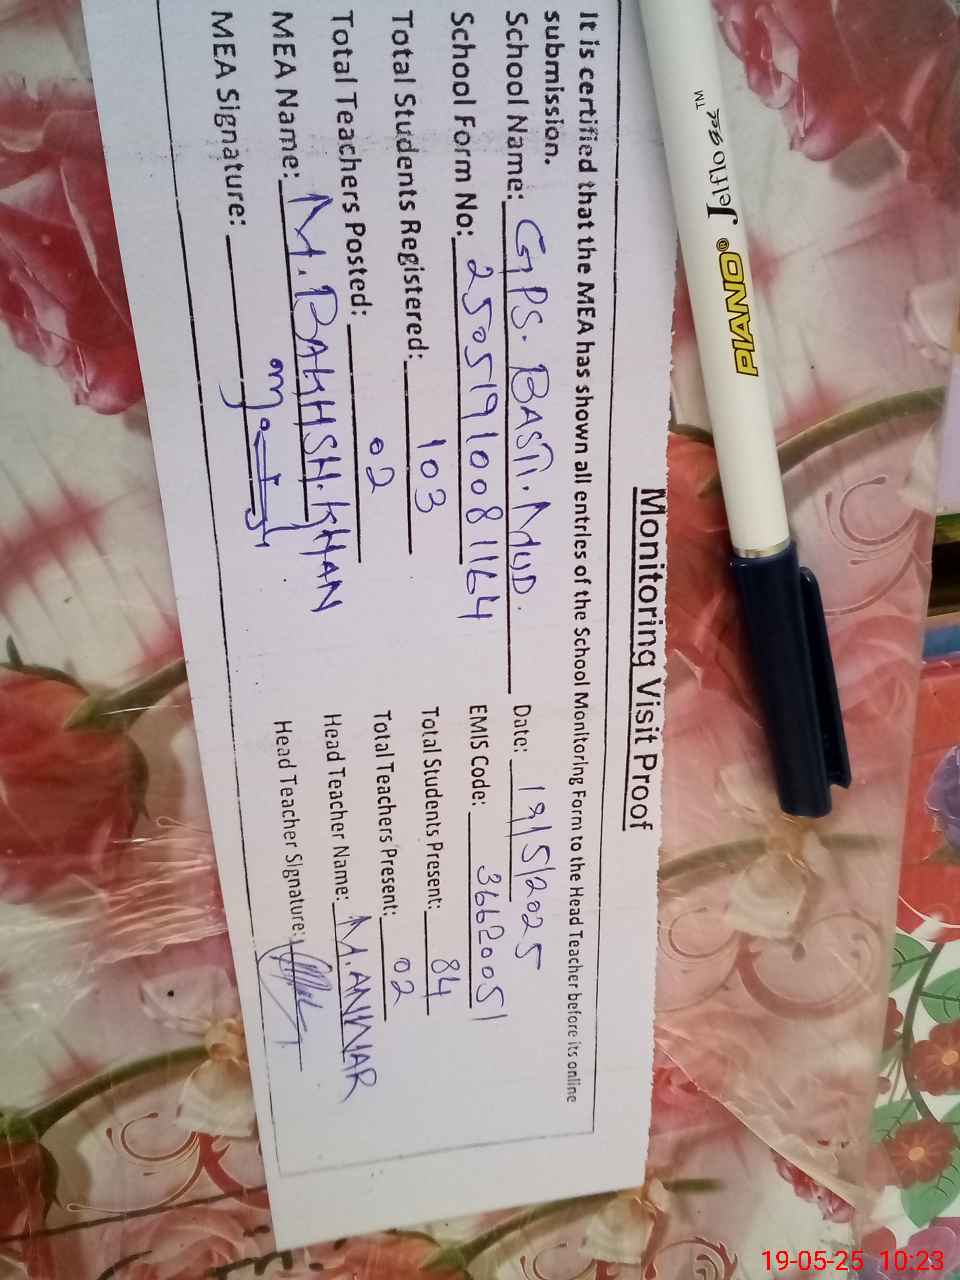 Monitoring Visit Proof
It is certified that the MEA has shown all entries of the School Monitoring Form to the Head Teacher before its online
submission.
School Name: GPS. BASTI. MUD. Date: 19/5/2025
School Form No: 2505191008 1164 EMIS Code: 36620051
Total Students Registered: 103 Total Students Present: 84
Total Teachers Posted: 02 Total Teachers Present: 02
MEA Name: M. BAKHSH. KHAN Head Teacher Name: M. ANWAR
MEA Signature: Head Teacher Signature:
Jelflo gel™
PIANO®
19-05-25 10:23